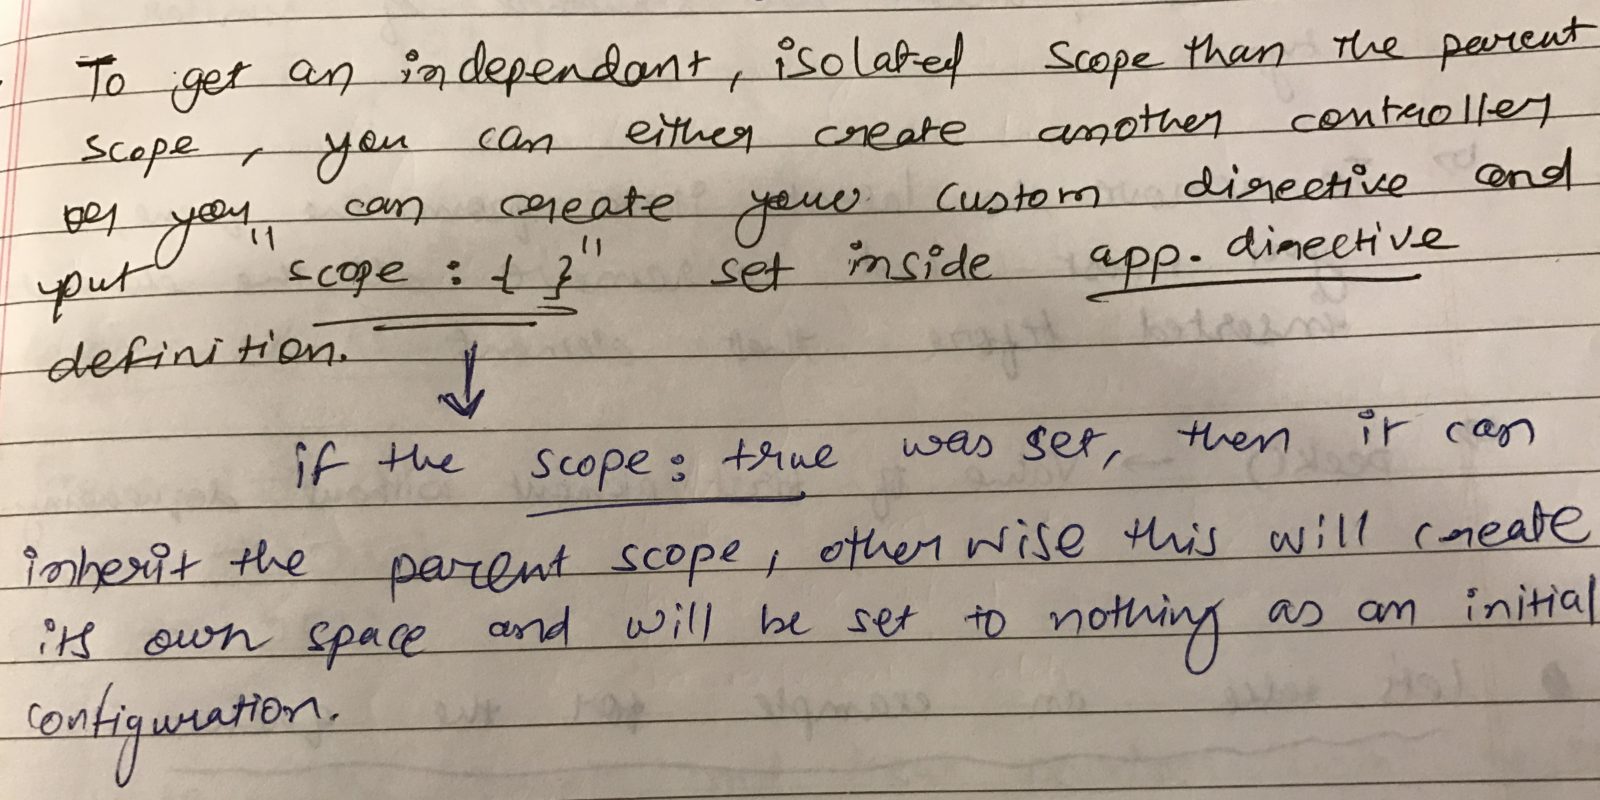 To get an independant, isolated scope than the parent
scope, you can either create another controller
or you can create your custom directive and
put "scope : { }" set inside app. directive
definition.
↓
if the scope: true was set, then it can
inherit the parent scope, otherwise this will create
its own space and will be set to nothing as an initial
configuration.